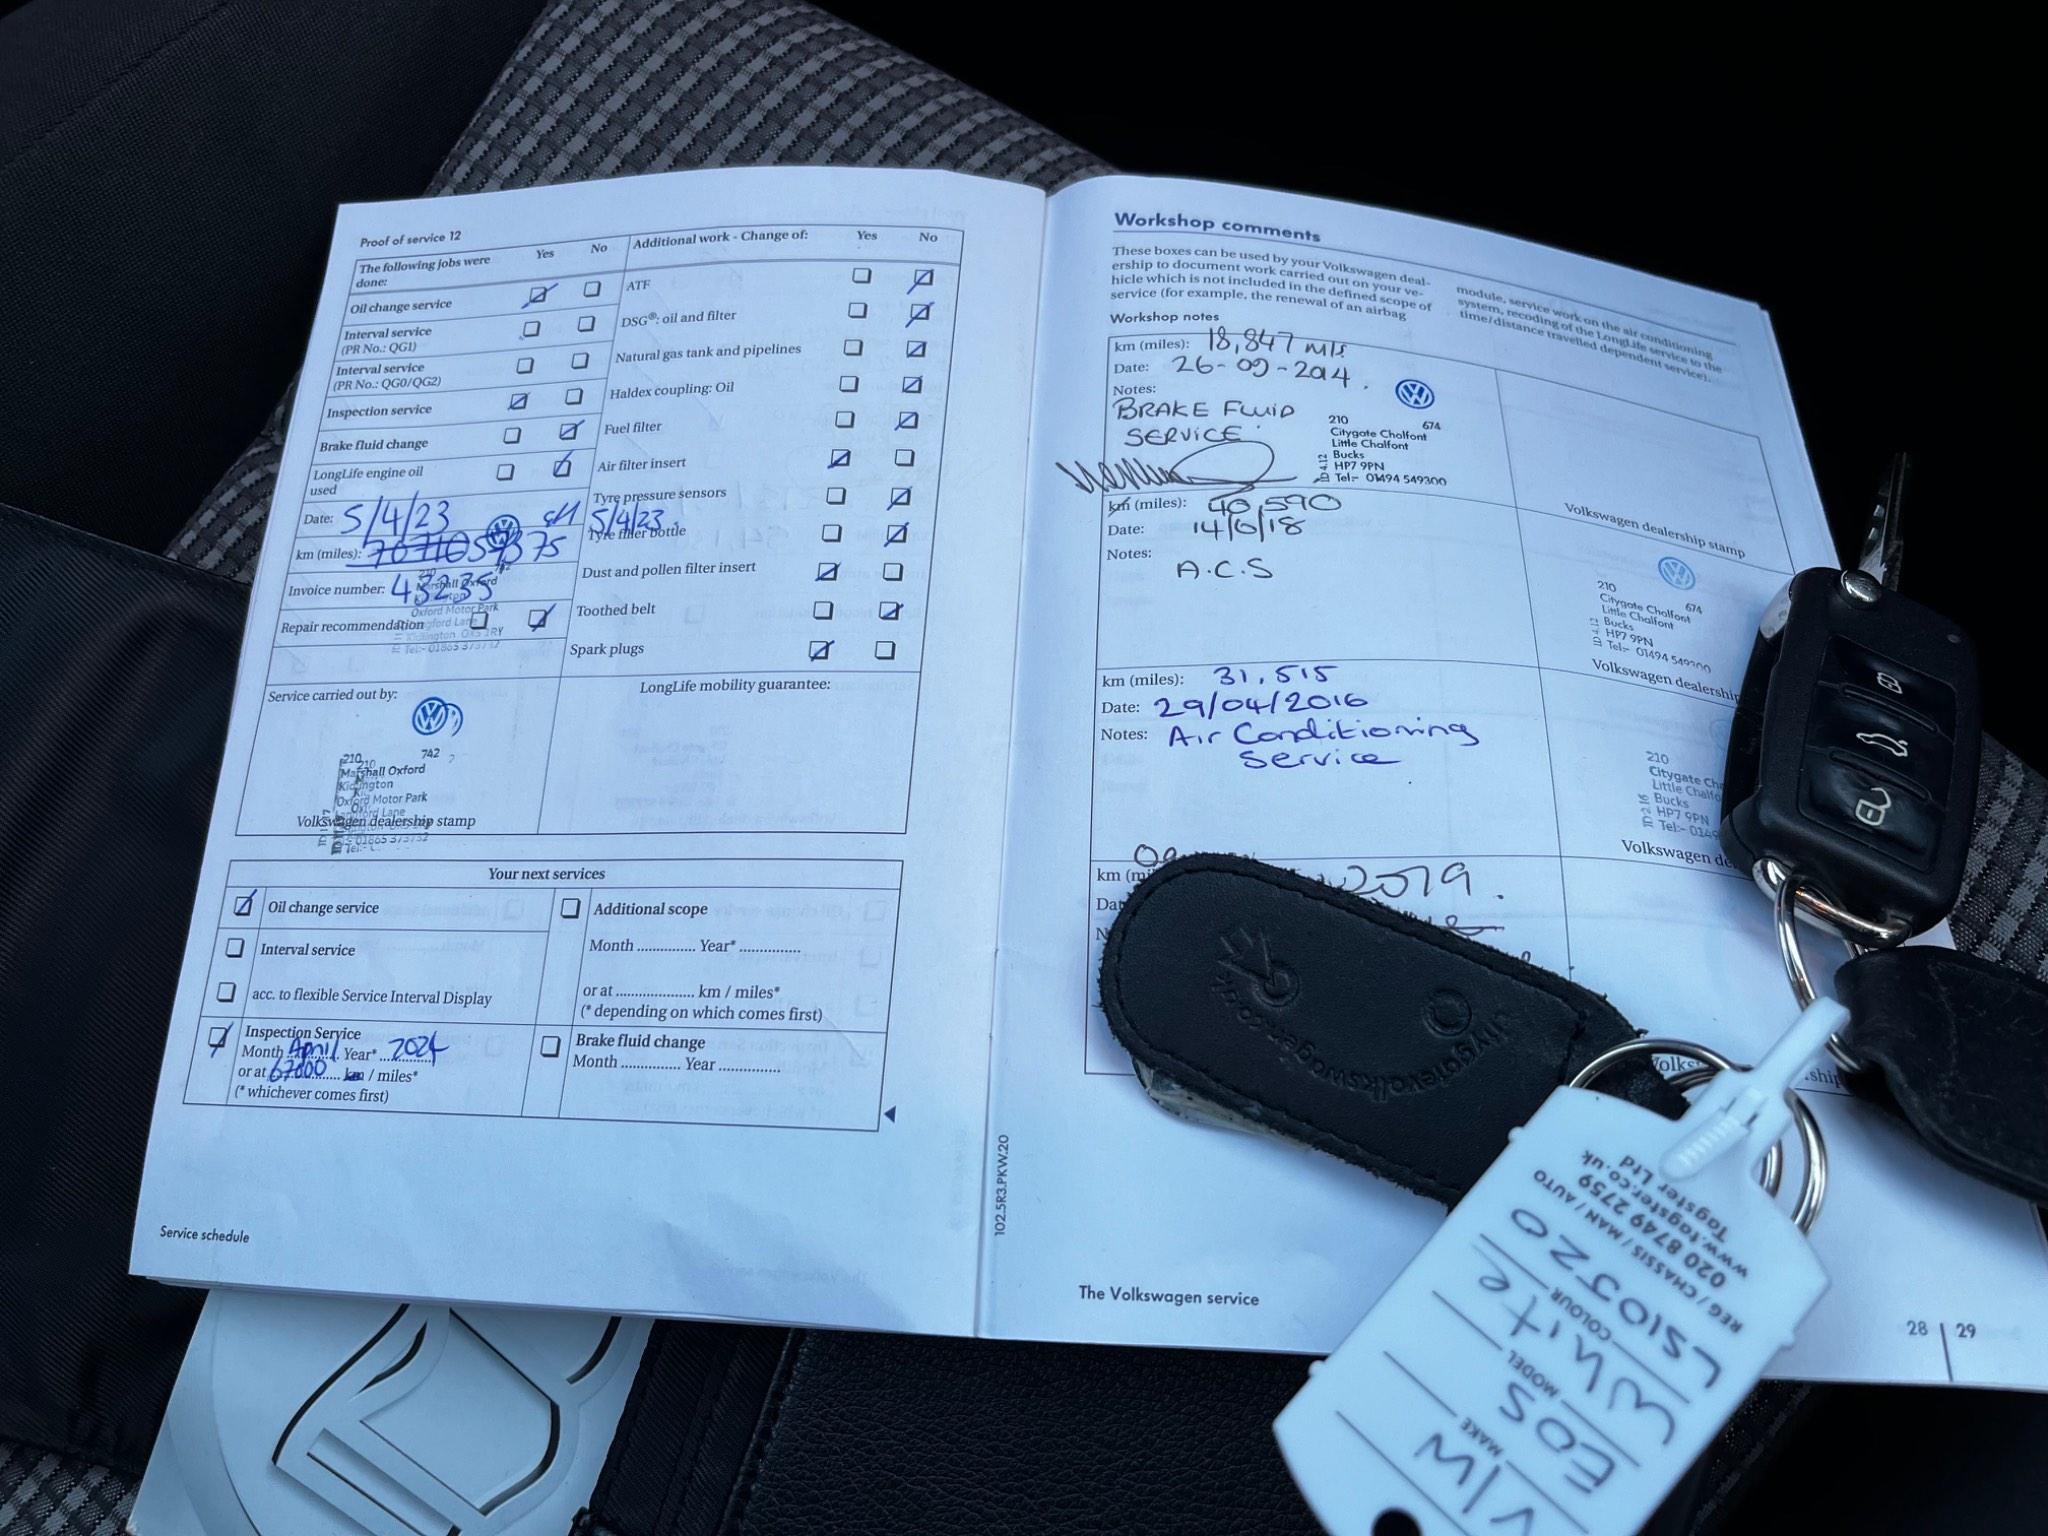 Proof of service 12
The following jobs were done: Yes No
Oil change service
Interval service
(PR No.: QG1)
Interval service
(PR No.: QG0/QG2)
Inspection service
Brake fluid change
LongLife engine oil
used
Date: 5/4/23
km (miles):
Invoice number: 43235
Repair recommendation
Additional work - Change of: Yes No
ATF
DSG®: oil and filter
Natural gas tank and pipelines
Haldex coupling: Oil
Fuel filter
Air filter insert
Tyre pressure sensors
5/4/23
Tyre filler bottle
Dust and pollen filter insert
Toothed belt
Spark plugs
Service carried out by:
210 742
Marshall Oxford
Kidlington
Oxford Motor Park
Volkswagen dealership stamp
LongLife mobility guarantee:
Your next services
Oil change service
Interval service
acc. to flexible Service Interval Display
Inspection Service
Month April Year* 2024
or at 67000 km / miles*
(* whichever comes first)
Additional scope
Month ............... Year* ...............
or at .................... km / miles*
(* depending on which comes first)
Brake fluid change
Month ............... Year ...............
Service schedule
102.5R3.PKW.20
Workshop comments
These boxes can be used by your Volkswagen deal-
ership to document work carried out on your ve-
hicle which is not included in the defined scope of
service (for example, the renewal of an airbag
module, service work on the air conditioning
system, recoding of the LongLife service to the
time/distance travelled dependent service).
Workshop notes
km (miles): 18,847 mls
Date: 26-09-2014.
Notes:
BRAKE FLUID
SERVICE
210 674
Citygate Chalfont
Little Chalfont
Bucks
HP7 9PN
Tel:- 01494 549300
Volkswagen dealership stamp
km (miles): 40,590
Date: 14/6/18
Notes:
A.C.S
210 674
Citygate Chalfont
Little Chalfont
Bucks
HP7 9PN
Tel:- 01494 549300
Volkswagen dealership
km (miles): 31,515
Date: 29/04/2016
Notes: Air Conditioning
Service
210
Citygate
Little
Bucks
HP7 9PN
Tel:-
Volkswagen
km
2019.
The Volkswagen service
28 | 29
citygatevolkswagen.co.uk
Tagster Ltd
www.tagster.co.uk
020 8749 2759
REG / CHASSIS / MAN / AUTO
LS10JZO
COLOUR
White
MODEL
EOS
MAKE
VW